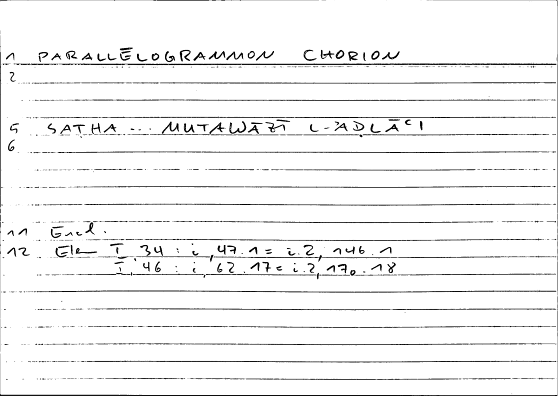 1 PARALLĒLOGRAMMON CHORION
2
5 SATHA ... MUTAWĀZĪ L-ʾADLĀʿI
6
11 Eucl.
12 Elem I, 34 : i, 47.1 = i.2, 146.1
I, 46 : i, 62.17 = i.2, 170.18